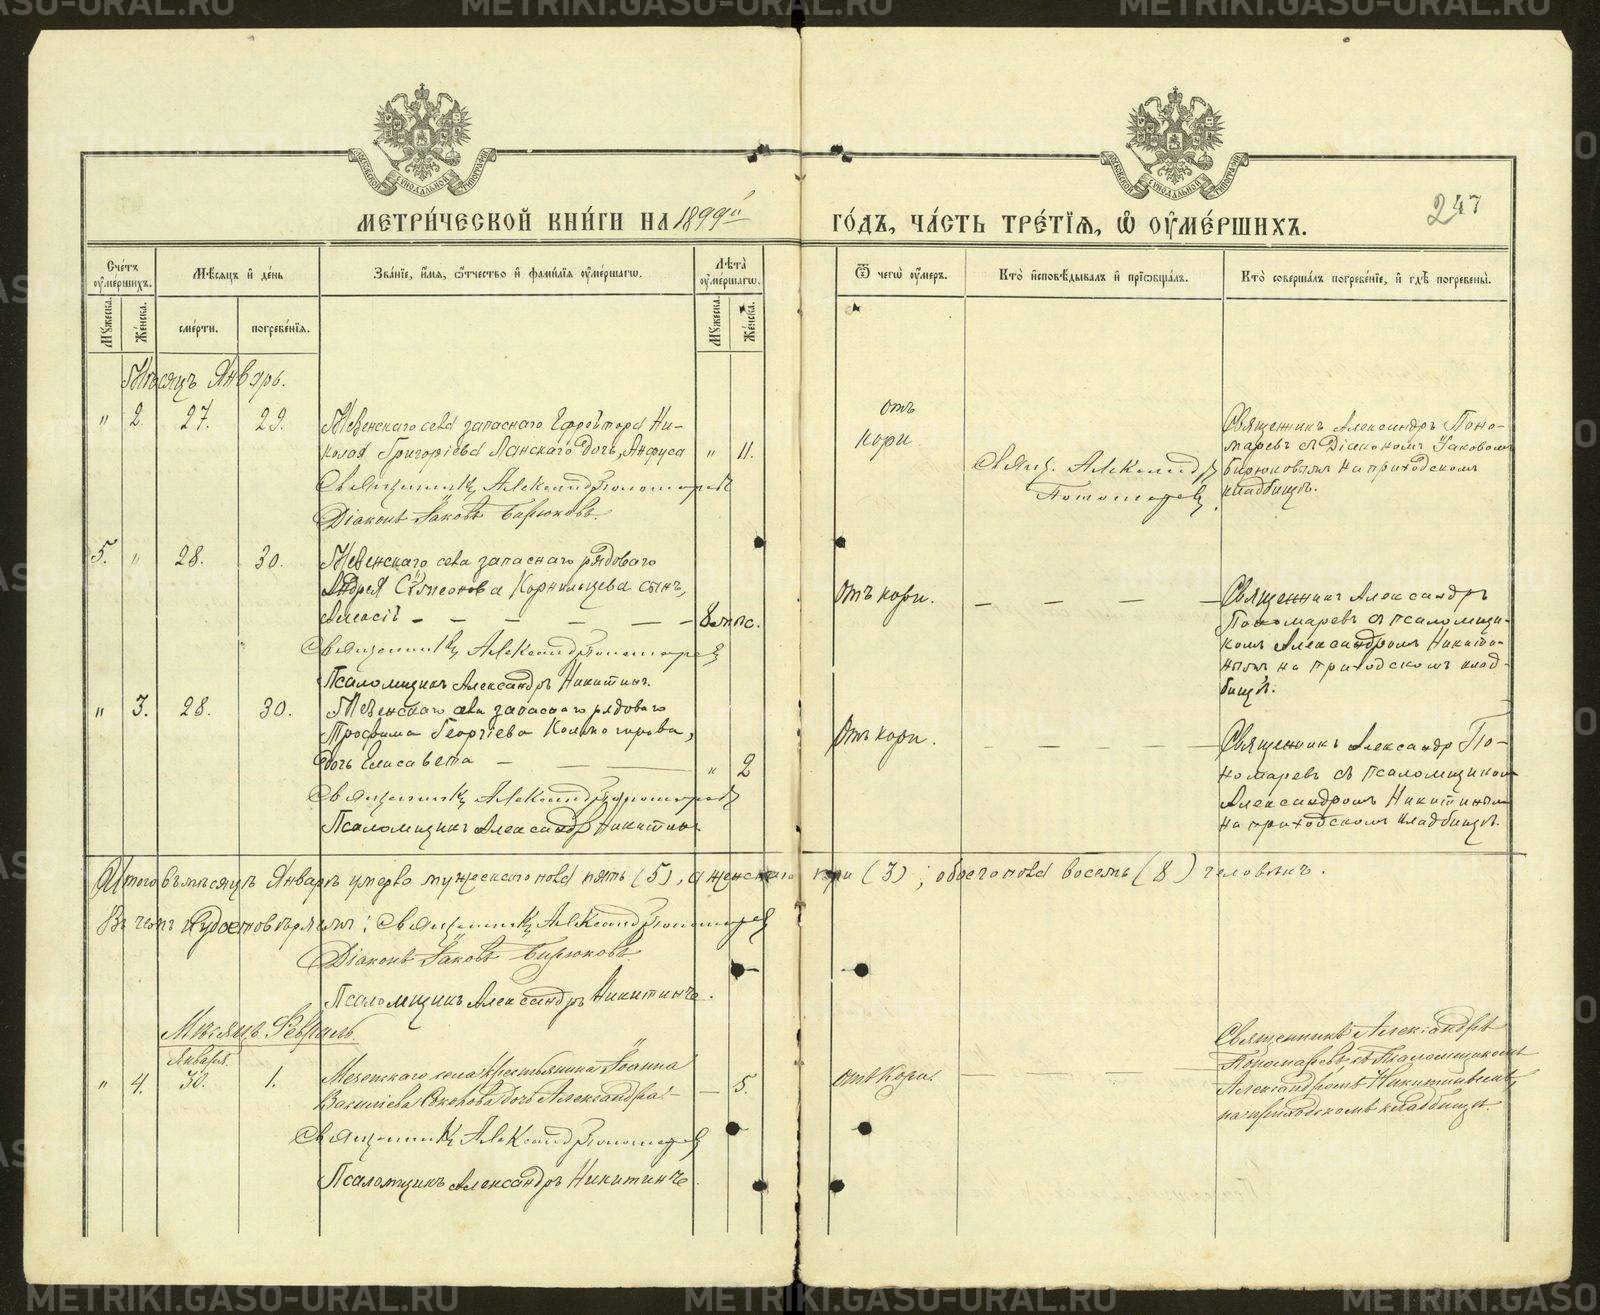 МЕТРИ́ЧЕСКОЙ КНИ́ГИ НА 1899й ГО́ДЪ, ЧА́СТЬ ТРЕ́ТІЯ, Ѿ ОУМЕ́РШИХЪ.
247
Сче́тъ оуме́ршихъ.
Мѣ́сяцъ и де́нь
Зва́ніе, и́мя, ѻ́тчество и фами́лія оуме́ршагѡ.
Лѣ́та оуме́ршагѡ.
Ѿ чегѡ̀ оу́меръ.
Кто̀ исповѣ́дывалъ и пріѡбща́лъ.
Кто̀ соверша́лъ погребе́ніе, и гдѣ̀ погребены̀.
Мꙋ́жеска.
Же́нска.
сме́рти.
погребе́нія.
Мꙋ́жеска.
Же́нска.
Мѣсяцъ Январь.
" 2. 27. 29.
Мезенскаго села запаснаго Ефрейтора Ни-
колая Григоріева Ланскаго дочь, Анфуса " 11.
Священникъ Александръ Пономаревъ
Діаконъ Іаковъ Бирюковъ.
отъ
кори.
Свящ. Александръ
Пономаревъ.
Священникъ Александръ Поно-
маревъ съ Діакономъ Іаковомъ
Бирюковымъ на приходскомъ
кладбищѣ.
5. " 28. 30.
Мезенскаго села запаснаго рядоваго
Андрея Сѷмеонова Корнильцева сынъ,
Алексій — — — — — — 8 мѣс.
Священникъ Александръ Пономаревъ
Псаломщикъ Александръ Никитинъ.
Отъ кори. — — — —
Священникъ Александръ
Пономаревъ съ псаломщи-
комъ Александромъ Никити-
нымъ на приходскомъ клад-
бищѣ.
" 3. 28. 30.
Мезенскаго села запаснаго рядоваго
Трофима Георгіева Колмогорова,
дочь Елисавета — — — " 2
Священникъ Александръ Пономаревъ
Псаломщикъ Александръ Никитинъ.
Отъ кори. — — — — —
Священникъ Александръ По-
номаревъ съ псаломщикомъ
Александромъ Никитинымъ
на приходскомъ кладбищѣ.
Итого въ мѣсяцѣ Январѣ умерло мужескаго пола пять (5), а женскаго три (3); обоего пола восемь (8) человѣкъ.
Въ чемъ и удостовѣряемъ: Священникъ Александръ Пономаревъ
Діаконъ Іаковъ Бирюковъ.
Псаломщикъ Александръ Никитинъ.
Мѣсяцъ Февраль.
Января
" 4. 30. 1.
Мезенскаго села крестьянина Іоанна
Василіева дочь Александра — — 5.
Священникъ Александръ Пономаревъ
Псаломщикъ Александръ Никитинъ.
Отъ Кори. — — — —
Священникъ Александръ
Пономаревъ съ Псаломщикомъ
Александромъ Никитинымъ
на приходскомъ кладбищѣ.
METRIKI.GASO-URAL.RU